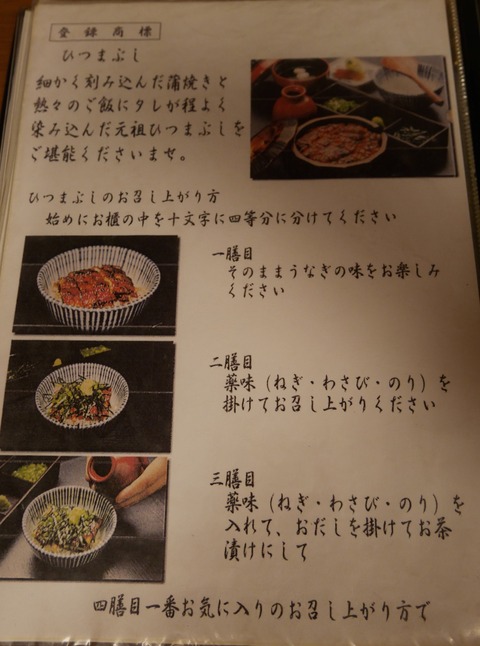 登録商標
ひつまぶし
細かく刻み込んだ蒲焼きと
熱々のご飯にタレが程よく
染み込んだ元祖ひつまぶしを
ご堪能くださいませ。
ひつまぶしのお召し上がり方
始めにお櫃の中を十文字に四等分に分けてください
一膳目
そのままうなぎの味をお楽しみ
ください
二膳目
薬味（ねぎ・わさび・のり）を
掛けてお召し上がりください
三膳目
薬味（ねぎ・わさび・のり）を
入れて、おだしを掛けてお茶
漬けにして
四膳目一番お気に入りのお召し上がり方で